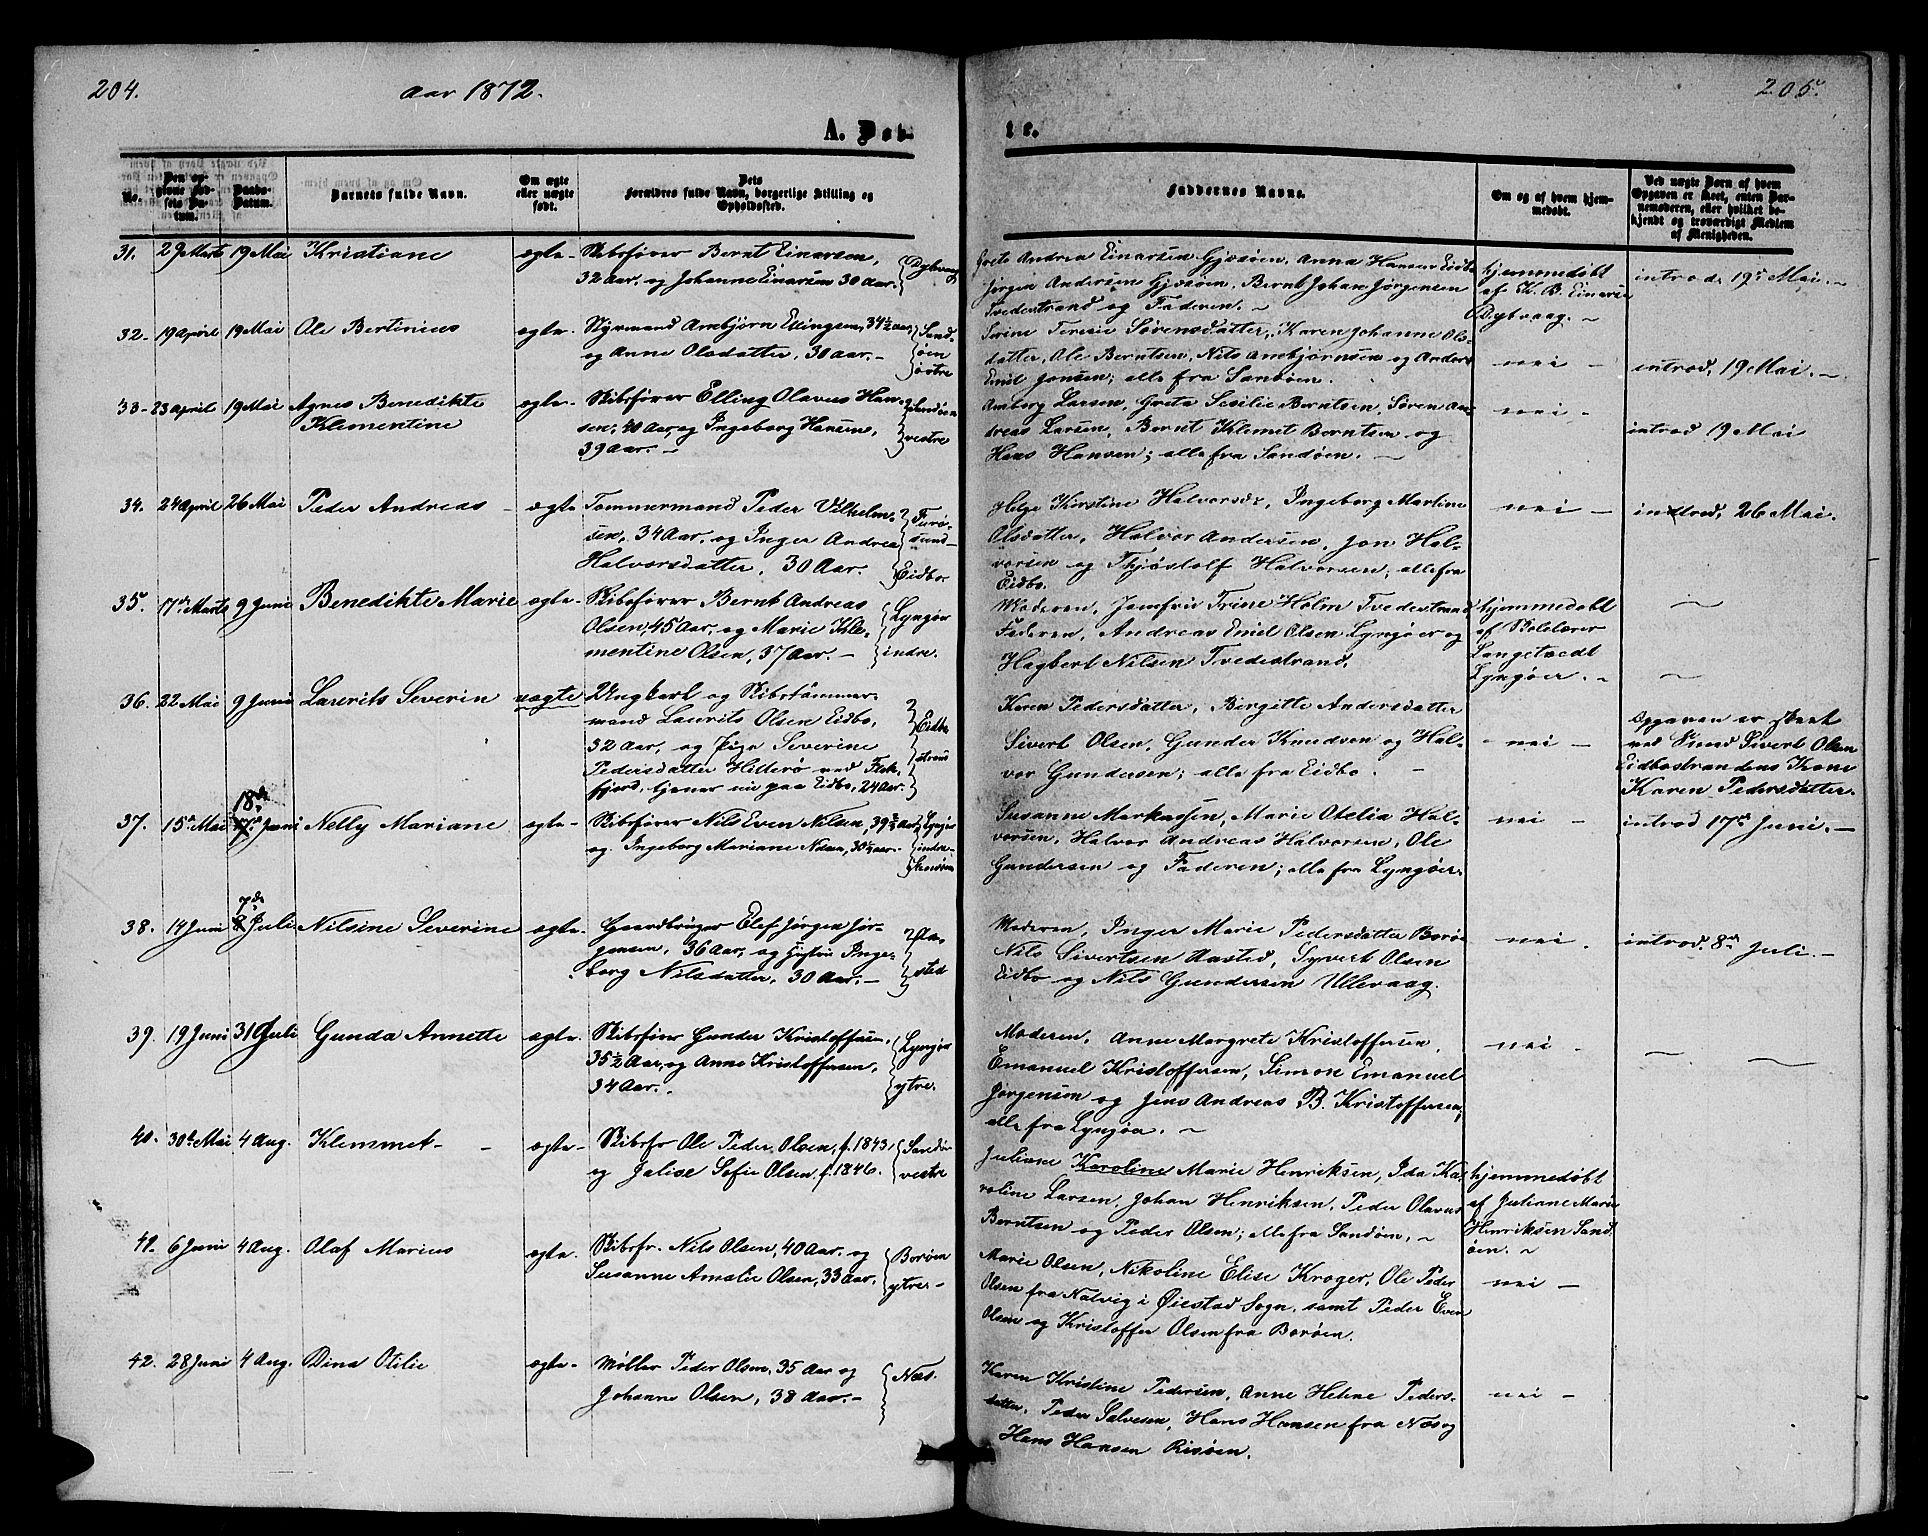 204.
Aar 1872.
205.
A. Døb-
te.
No.
Den op-
givne Fød-
sels Da-
tum.
Daabs-
Datum.
Barnets fulde Navn.
Om ægte
eller uægte
født.
Dets
Forældres fulde Navn, borgerlige Stilling og
Opholdssted.
Faddernes Navne.
Om og af hvem hjem-
medøbt.
Ved uægte Børn af hvem
Opgaven er skeet, enten Bar-
nemoderen, eller hvilket be-
kjendt og troværdigt Medlem
af Menigheden.
31. 29 Marts 19 Mai Kristiane ægte- Skibsfører Bernt Einarsen,
32 Aar, og Johanne Einarsen 30 Aar. Dybvaag
Grete Andrea Einarsen Gjæsøien, Anna Hansen Eidbo
Jørgen Andersen Gjæsøien, Bernt Johan Jørgensen
Tvedestrand og Faderen.
hjemmedøbt
af K. B. Einarsen
Dybvaag.
introd. 19de Mai.
32- 19 April 19 Mai Ole Bertinius ægte- Styrmand Anbjørn Ellingsen, 34½ Aar,
og Anne Olsdatter, 30 Aar.-
Sand-
øen
østre
Serine Teresie Sørensdatter, Karen Johanne Ols-
datter, Ole Berntsen, Nils Anbjørnsen og Anders
Emil Jonsen; alle fra Sandøen.
nei -
introd. 19 Mai.
33- 23 April 19 Mai Agnes Benedikte
Klementine
ægte- Skibsfører Elling Olavus Han-
sen, 40 Aar, og Ingeborg Hansen,
39 Aar. -
Sandøen
vestre
Amborg Larsen, Grete Sesilie Berntsen, Søren An-
dreas Larsen, Bernt Klemet Berntsen og
Hans Hansen; alle fra Sandøen.
nei -
introd 19 Mai
34. 24 April 26 Mai Peder Andreas - ægte Tømmermand Peder Vilhelm-
sen, 34 Aar, og Inger Andrea
Halvorsdatter, 30 Aar.
Furø-
sund-
Eidbo
Helge Kirstine Halvorsdr, Ingeborg Martine
Olsdatter, Halvor Andersen, Jon Hal-
vorsen og Thjøstolf Halvorsen; alle fra
Eidbo.
nei -
introd. 26 Mai.
35. 17de Marts 9 Juni Benedikte Marie ægte- Skibsfører Bernt Andreas
Olsen, 45 Aar, og Marie Kle-
mentine Olsen, 37 Aar. -
Lyngør
indre.
Moderen, Jomfru Trine Holm Tvedestrand,
Faderen, Andreas Emil Olsen Lyngøer og
Hagbert Nilsen Tvedestrand.
hjemmedøbt
af Skolelærer
Langetvedt
Lyngøer.
36. 22 Mai 9 Juni Laurits Severin uægte Ungkarl og Skibstømmer-
mand Laurits Olsen Eidbo,
32 Aar, og Pige Severine
Pedersdatter Hitterø ved Flek-
fjord, tjener nu paa Eidbo, 24 Aar.
Eidbo
strand
Karen Pedersdatter, Birgitte Andersdatter
Sivert Olsen, Gunder Knudsen og Hal-
vor Gundersen; alle fra Eidbo.
- nei -
Opgaven er skeet
ved Sivert Olsen
Eidbostrandens Kone
Karen Pedersdatter.
18de
37. 15de Mai 17de Juni Nelly Mariane ægte- Skibsfører Nils Even Nilsen, 39½ Aar,
og Ingeborg Mariane Nilsen, 30½ Aar.
Lyngør
indre
Susanne Markussen, Marie Otelia Hal-
vorsen, Halvor Andreas Halvorsen, Ole
Gundersen og Faderen; alle fra Lyngøer.
nei -
introd 17de Juni. -
7de
38. 14 Juni 8 Juli Nilsine Severine ægte- Gaardbruger Elef Jørgen Jør-
gensen, 36 Aar, og Hustru Inge-
borg Nilsdatter, 30 Aar. -
Aa-
sted
Moderen, Inger Marie Pedersdatter Borø
Nils Sivertsen Aasted, Syvert Olsen
Eidbo og Nils Gundersen Ullevaag.
nei.
introd. 8de Juli. -
39. 19 Juni 31 Juli Gunda Annette ægte- Skibsfører Gunder Kristoffersen,
35½ Aar, og Anne Kristoffersen,
34 Aar.
Lyngør
ytre.
Moderen, Anne Margrete Kristoffersen,
Emanuel Kristoffersen, Simon Emanuel
Jørgensen og Jens Andreas B. Kristoffersen;
alle fra Lyngøer.
nei -
40. 30te Mai 4 Aug. Klemmet - ægte- Skibsfr Ole Peder Olsen, f. 1843,
og Jalise Sofie Olsen f. 1846.
Sandø
vestre
Juliane Karoline Marie Henriksen, Ida Ka-
roline Larsen, Johan Henriksen, Peder Olavus
Berntsen og Peder Olsen; alle fra Sandøen.
hjemmedøbt
af Juliane Marie
Henriksen Sand
øen.
41- 6 Juni 4 Aug. Olaf Marius ægte. Skibsfr. Nils Olsen, 40 Aar, og
Susanne Amalie Olsen, 33 Aar.
Borøen
ytre-
Marie Olsen, Nikoline Elise Krøger, Ole Peder
Olsen fra Natvig i Øiestad Sogn, samt Peder Even
Olsen og Kristoffer Olsen fra Borøen.
nei -
42. 28 Juni 4 Aug. Dina Otilie ægte- Møller Peder Olsen, 35 Aar og
Johanne Olsen, 38 Aar. -
Næs.
Karen Kristine Pedersen, Anne Helene Peders-
datter, Peder Salvesen, Hans Hansen fra Næs og
Hans Hansen Risøen.
nei -